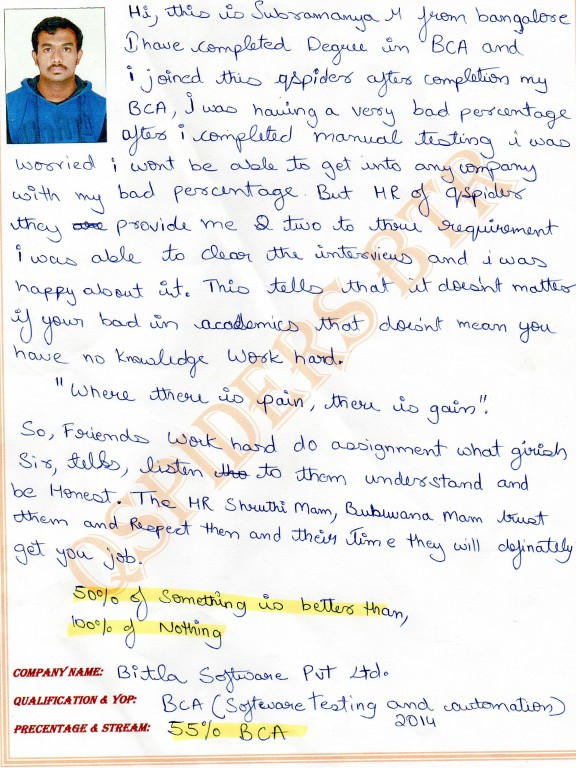 Hi, this is Subramanya M from bangalore
I have completed Degree in BCA and
i joined this qspider after completion my
BCA, i was having a very bad percentage
after i completed manual testing i was
worried i wont be able to get into any company
with my bad percentage. But HR of qspider
they are provide me 2 two to three requirement
i was able to clear the interviews and i was
happy about it. This tells that it doesn't matter
if your bad in academics that doesn't mean you
have no knowledge work hard.
"Where there is pain, there is gain".
So, Friends work hard do assignment what girish
Sir, tells, listen to them understand and
be Honest. The HR Shruthi Mam, Bubuwana Mam trust
them and Respect them and their Time they will definately
get you job.
50% of Something is better than,
100% of Nothing
COMPANY NAME: Bitla Software Pvt Ltd.
QUALIFICATION & YOP: BCA (Software Testing and automation)
2014
PRECENTAGE & STREAM: 55% BCA
QSPIDERS BTR